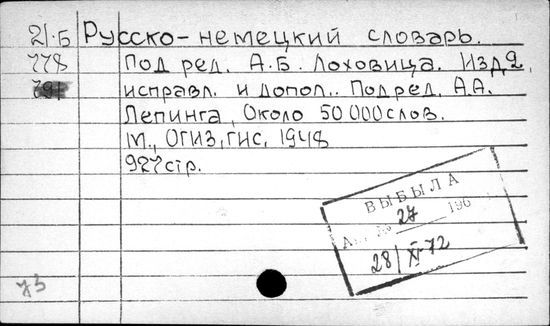 21.Б Русско-немецкий словарь.
778 Под ред. А.Б. Лоховица. Изд. 2,
исправл. и допол.. Под ред. А.А.
Лепинга, Около 50 000 слов.
М., ОГИЗ, ГИС, 1948
927 стр.
ВЫБЫЛА
А № 27 196
28/XI-72